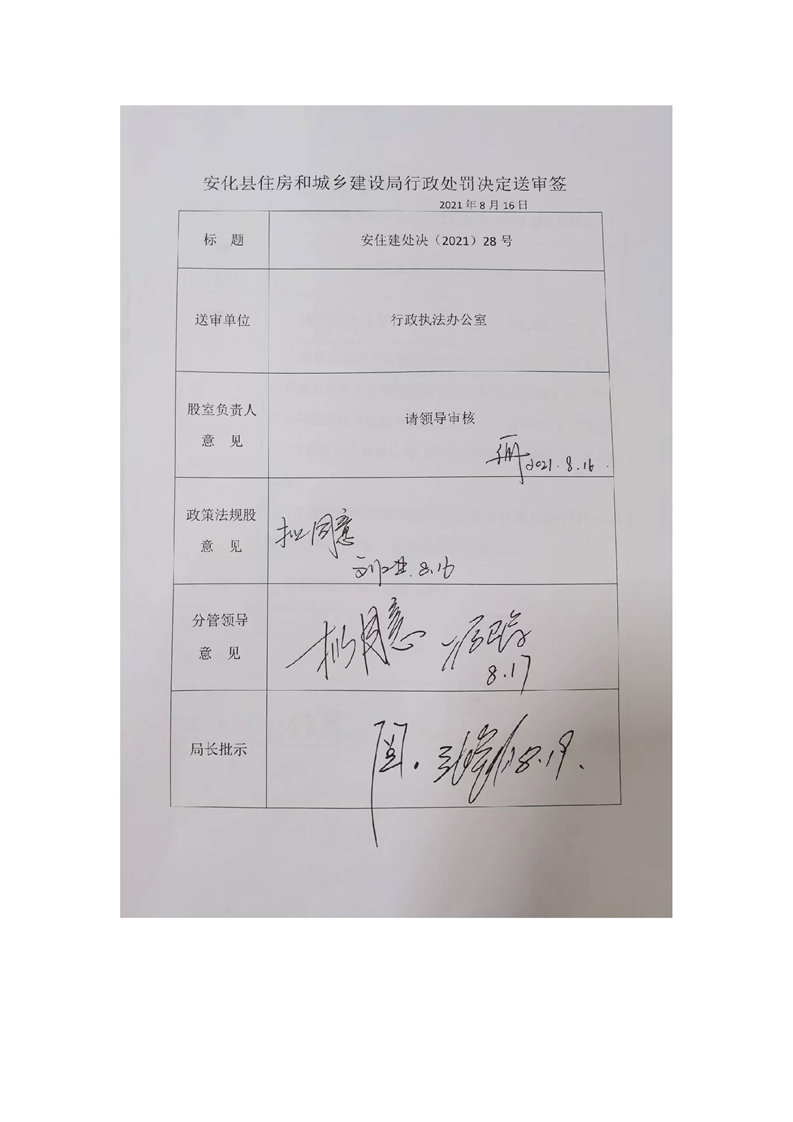 安化县住房和城乡建设局行政处罚决定送审签
2021年8月16日
标 题
安住建处决（2021）28号
送审单位
行政执法办公室
股室负责人
意 见
请领导审核
2021.8.16.
政策法规股
意 见
拟同意
8.16
分管领导
意 见
拟同意
8.17
局长批示
8.19.